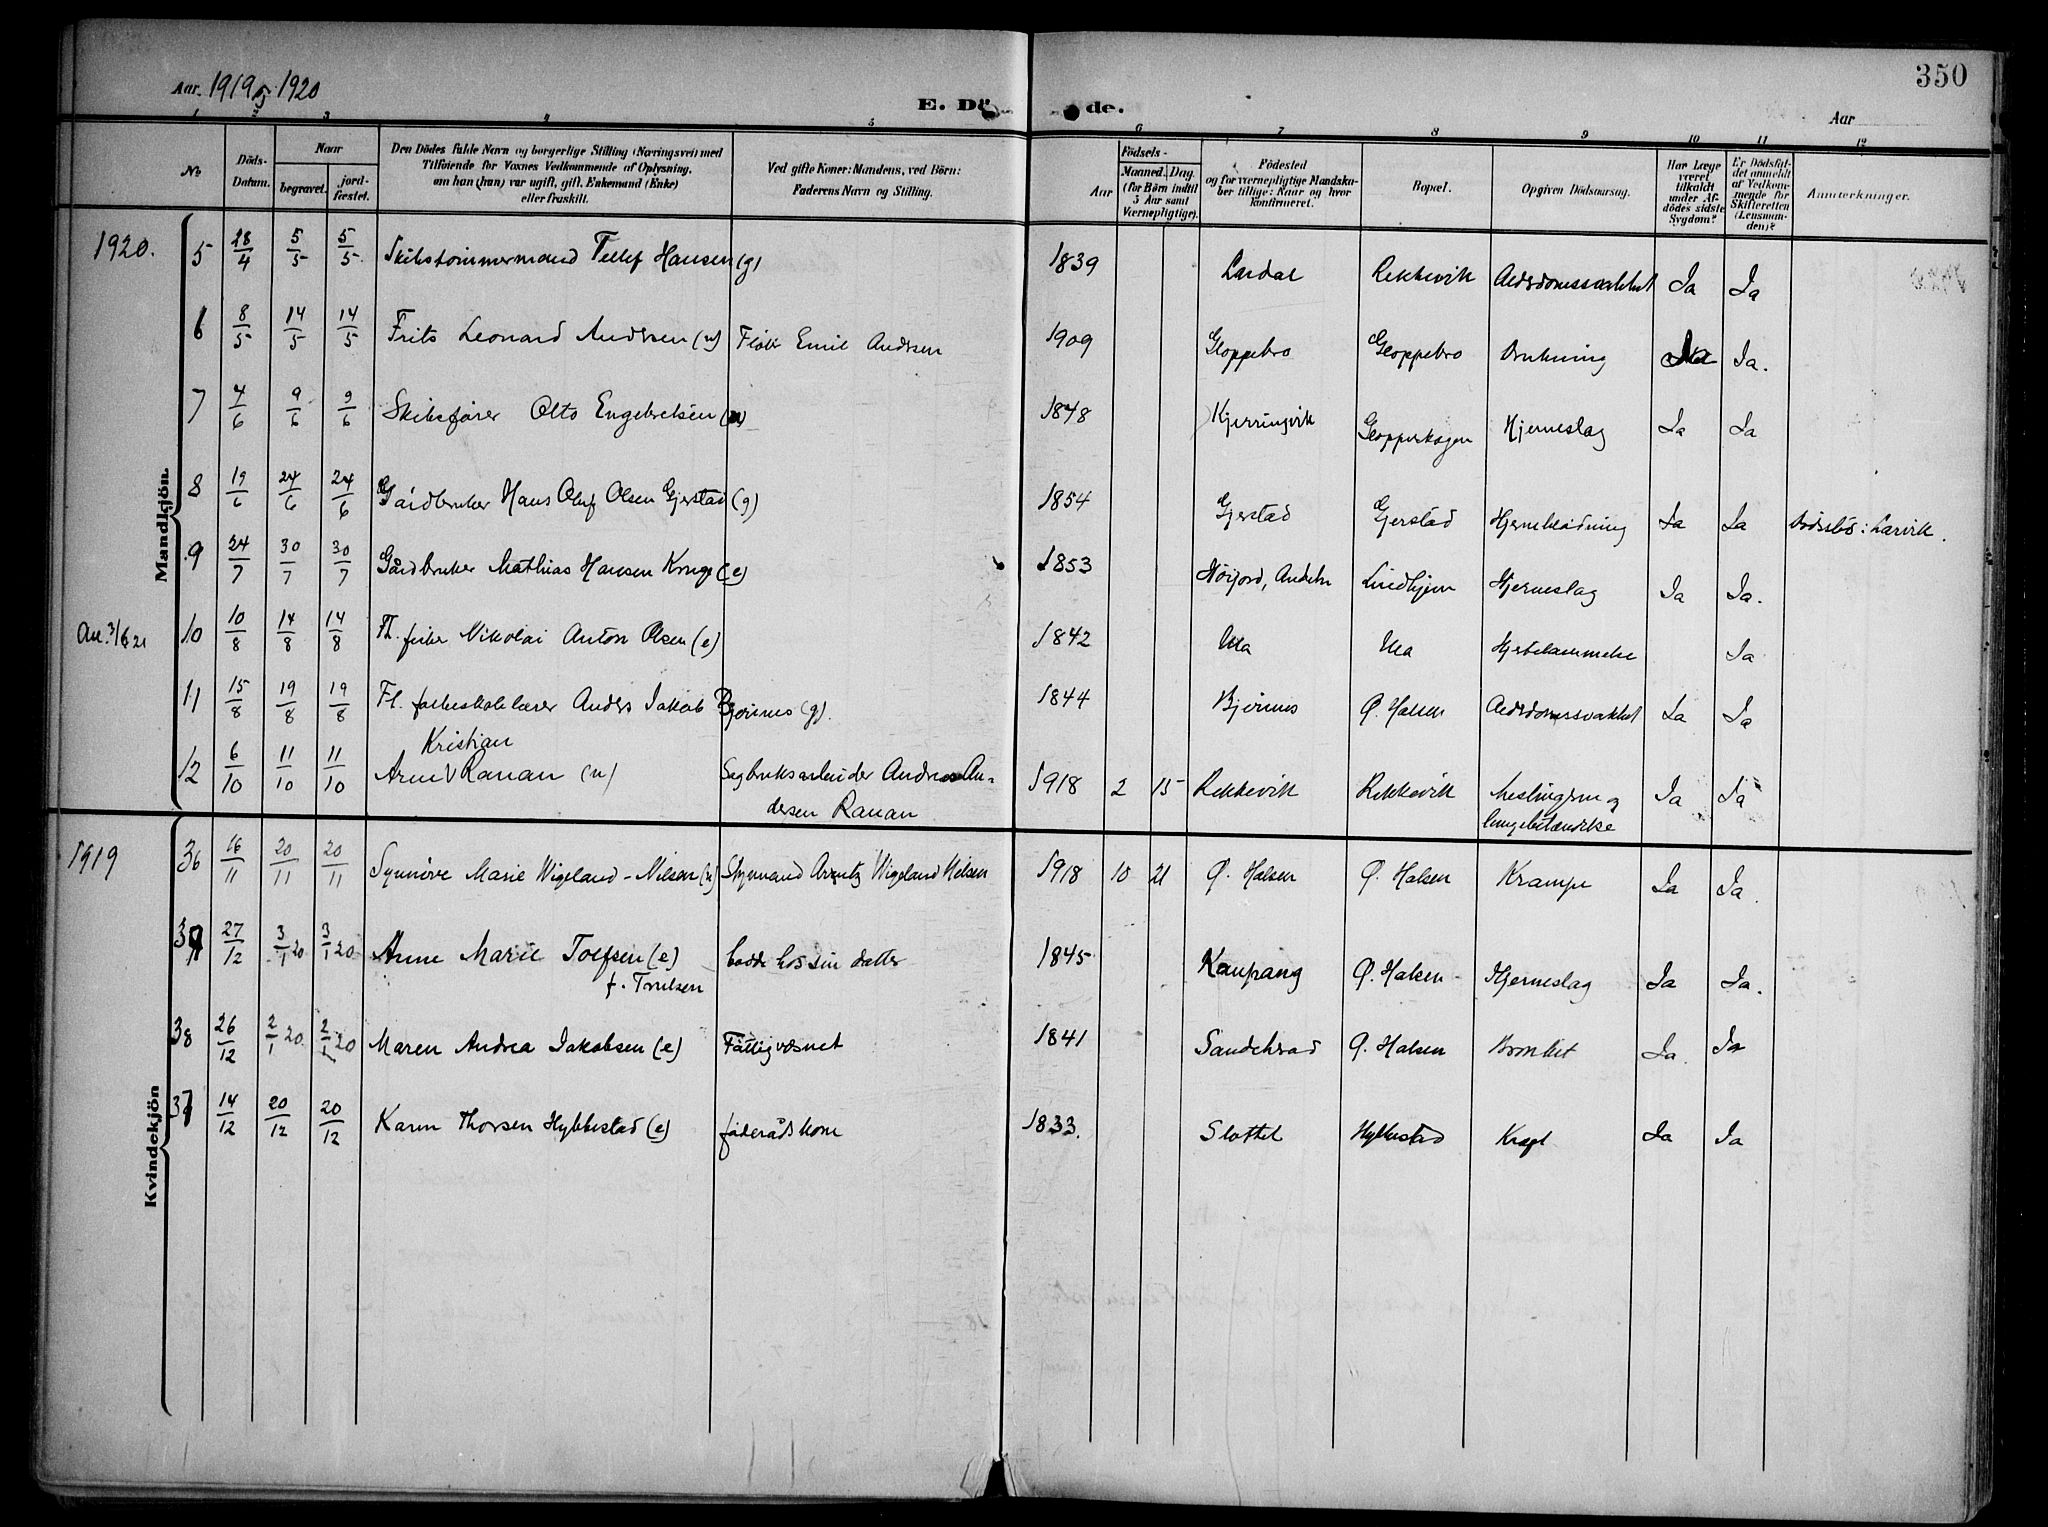 Aar. 1919 og 1920
E. Dö de.
Aar
350
1 2 3 4 5 6 7 8 9 10 11 12
No
Döds-Datum.
Naar
begravet.
jord-fæstet.
Den Dödes fulde Navn og borgerlige Stilling (Næringsvei) med Tilföiende for Voxnes Vedkommende af Oplysning, om han (hun) var ugift, gift, Enkemand (Enke) eller fraskilt.
Ved gifte Koner: Mandens, ved Börn: Faderens Navn og Stilling.
Födsels-
Aar
Maaned. Dag.
(for Börn indtil 5 Aar samt Værnepligtige).
Födested og for værnepligtige Mandskaber tillige: Naar og hvor konfirmeret.
Bopæl.
Opgiven Dödsaarsag.
Har Læge været tilkaldt under Afdödes sidste Sygdom?
Er Dödsfaldet anmeldt af Vedkommende for Skifteretten (Lensmanden)?
Anmærkninger.
Mandkjön.
1920. 5 28/4 5/5 5/5 Skibstømmermand Tellef Hansen (g) 1839 Lardal Rekkevik Alderdomssvakhet Ja Ja
6 8/5 14/5 14/5 Frits Leonard Andersen (u) Emil Andersen 1909 Gloppebro Gloppebro Drukning Ja.
7 4/6 9/6 9/6 Skibsfører Otto Engebretsen 1848 Kjerringvik Gloppeskogen Hjerneslag Ja Ja
8 19/6 24/6 24/6 Gårdbruker Hans Oluf Olsen Gjerstad (g) 1854 Gjerstad Gjerstad Hjerneblødning Ja Ja Larvik.
9 24/7 30/7 30/7 Gårdbruker Mathias Hansen Krugs (e) 1853 Høijord, Andebu Lindhjem Hjerneslag Ja Ja.
An. 3/6 21 10 10/8 14/8 14/8 Fh. fisker Nikolai Anton Olsen (e) 1842 Ula Ula Hjertelammelse Ja
11 15/8 19/8 19/8 Fh. folkeskolelærer Anders Jakob Bjørnnes (g). 1844 Bjørnnes Ø. Halsen Alderdomssvakhet Ja Ja
Kristian
12 6/10 11/10 11/10 Arne V Ranan (u) Sagbruksarbeider Andreas Andersen Ranan 1918 2 15 Rekkevik Rekkevik Meslinger og lungebetændelse Ja Ja
Kvindekjön
1919 36 16/11 20/11 20/11 Synnøve Marie Wigeland-Nilsen (u) Styrmand Arentz Wigeland Nilsen 1918 10 21 Ø. Halsen Ø. Halsen Krampe Ja Ja.
37 27/12 3/1 20 3/1 20 Anne Marie Tollefsen (e) bodde hos sin datter 1845 Kaupang Ø. Halsen Hjerneslag Ja Ja.
f. Truelsen
38 26/12 2/1 20. 2/1 20 Maren Andrea Jakobsen (e) Fattigvæsnet 1841 Sandekrad Ø. Halsen Bronkit Ja. Ja
37 14/12 20/12 20/12 Karen Thorsen Hybbestad (e) føderådskone 1833. Slottet Hybbestad Kræft Ja Ja